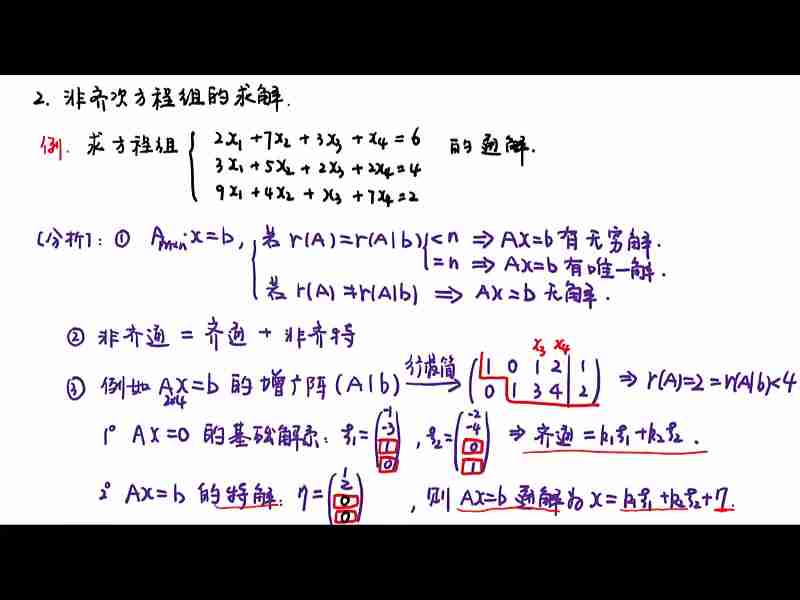 2. 非齐次方程组的求解.
例. 求方程组 { 2x₁+7x₂+3x₃+x₄=6 的通解.
3x₁+5x₂+2x₃+2x₄=4
9x₁+4x₂+x₃+7x₄=2
(分析): ① Aₘₓₙ·x=b, { 若 r(A)=r(A|b) { <n ⇒ Ax=b 有无穷解.
=n ⇒ Ax=b 有唯一解.
若 r(A)≠r(A|b) ⇒ Ax=b 无解.
② 非齐通 = 齐通 + 非齐特
x₃ x₄
③ 例如 Ax=b 的增广阵 (A|b) 行最简 → ( 1 0 1 2 | 1 ) ⇒ r(A)=2=r(A|b)<4
2×4 ( 0 1 3 4 | 2 )
1° AX=0 的基础解系: ξ₁=(-1 -3 1 0), ξ₂=(-2 -4 0 1) ⇒ 齐通=k₁ξ₁+k₂ξ₂.
2° AX=b 的特解: η=(1 2 0 0), 则 AX=b 通解为 x=k₁ξ₁+k₂ξ₂+η.